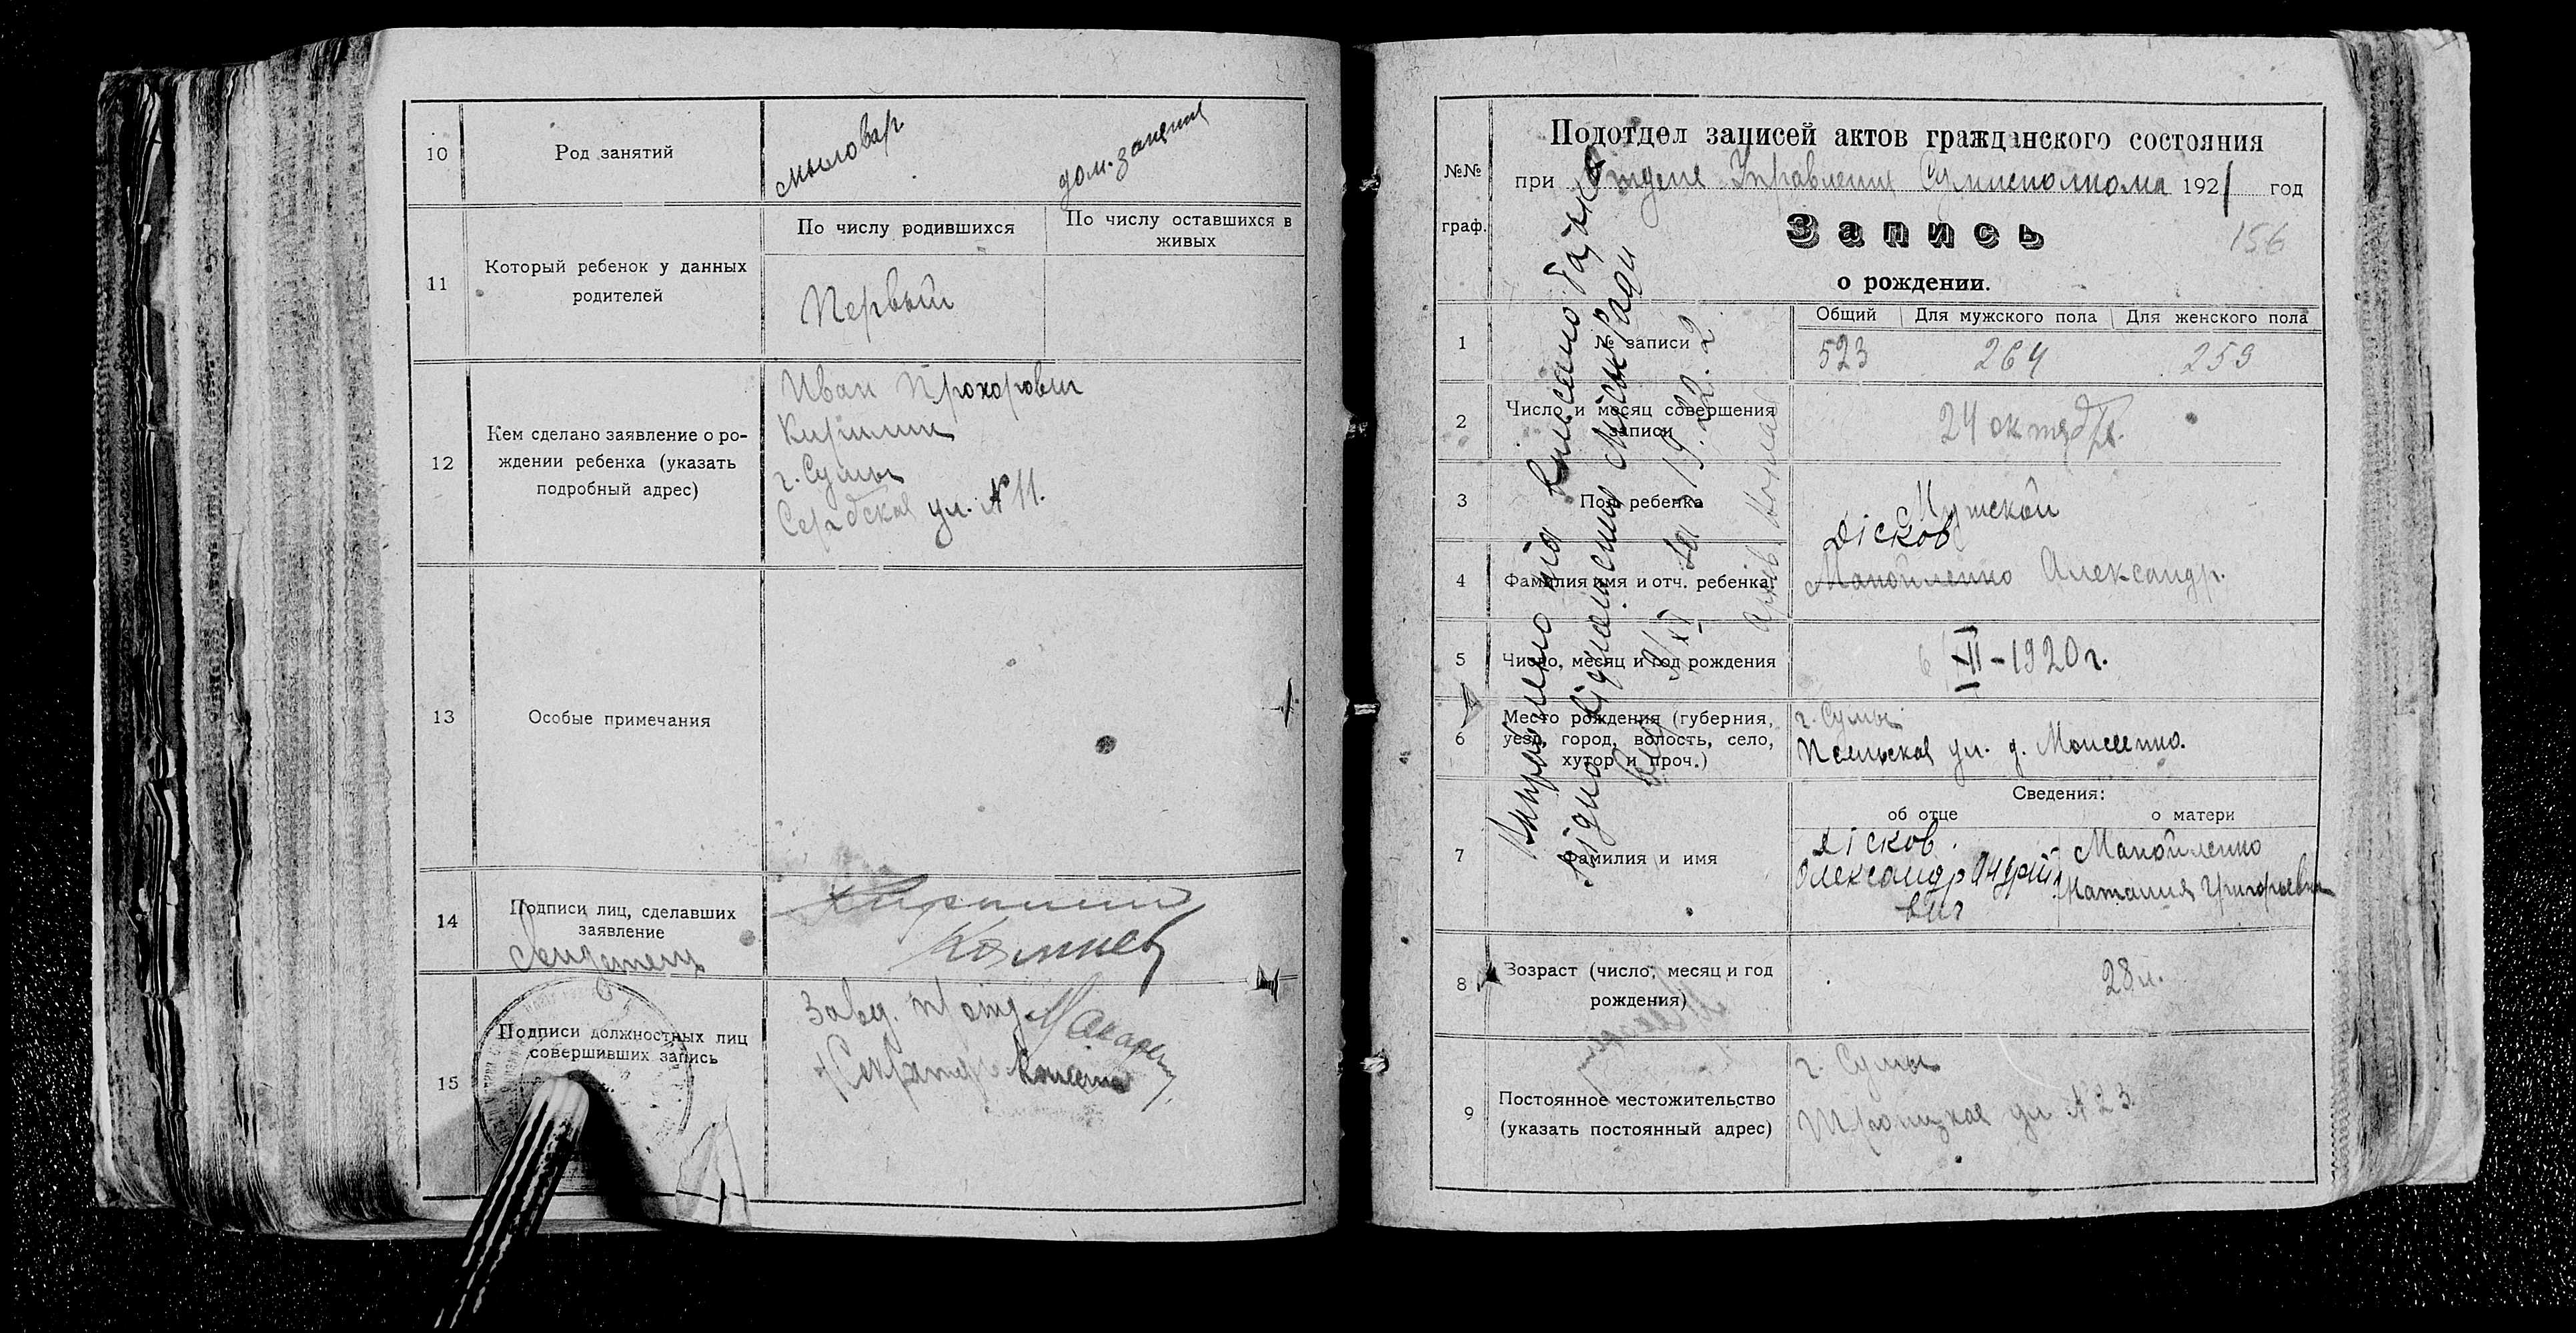 10
Род занятий
мыловар
дом. занятия
11
Который ребенок у данных
родителей
По числу родившихся
По числу оставшихся в
живых
Первый
12
Кем сделано заявление о ро-
ждении ребенка (указать
подробный адрес)
Иван Прохорович
г. Сумы
Сербская ул. № 11.
13
Особые примечания
14
Подписи лиц, сделавших
заявление
Свидетель
15
Подписи должностных лиц
совершивших запись
Завед. п/отд.
Секретарь
№№
граф.
Подотдел записей актов гражданского состояния
при Отделе Управления Сумисполкома 1921 год
Запись
156
о рождении.
1
№ записи
Общий
Для мужского пола
Для женского пола
523
264
259
2
Число и месяц совершения
записи
24 октяб.
3
Пол ребенка
Мужской
4
Фамилия имя и отч. ребенка
Дісков
Манойленко Александр.
5
Число, месяц и год рождения
6 XII-1920 г.
6
Место рождения (губерния,
уезд, город, волость, село,
хутор и проч.)
г. Сумы
ул. д. Моисеенко.
7
Фамилия и имя
Сведения:
об отце
о матери
Дісков.
Олександр Андрій
вич
Манойленко
Наталия Григорьевна
8
Возраст (число, месяц и год
рождения)
28 л.
9
Постоянное местожительство
(указать постоянный адрес)
г. Сумы
Троицкая ул № 23.
Виправлено та вписано батька
згідно відношення Міськради